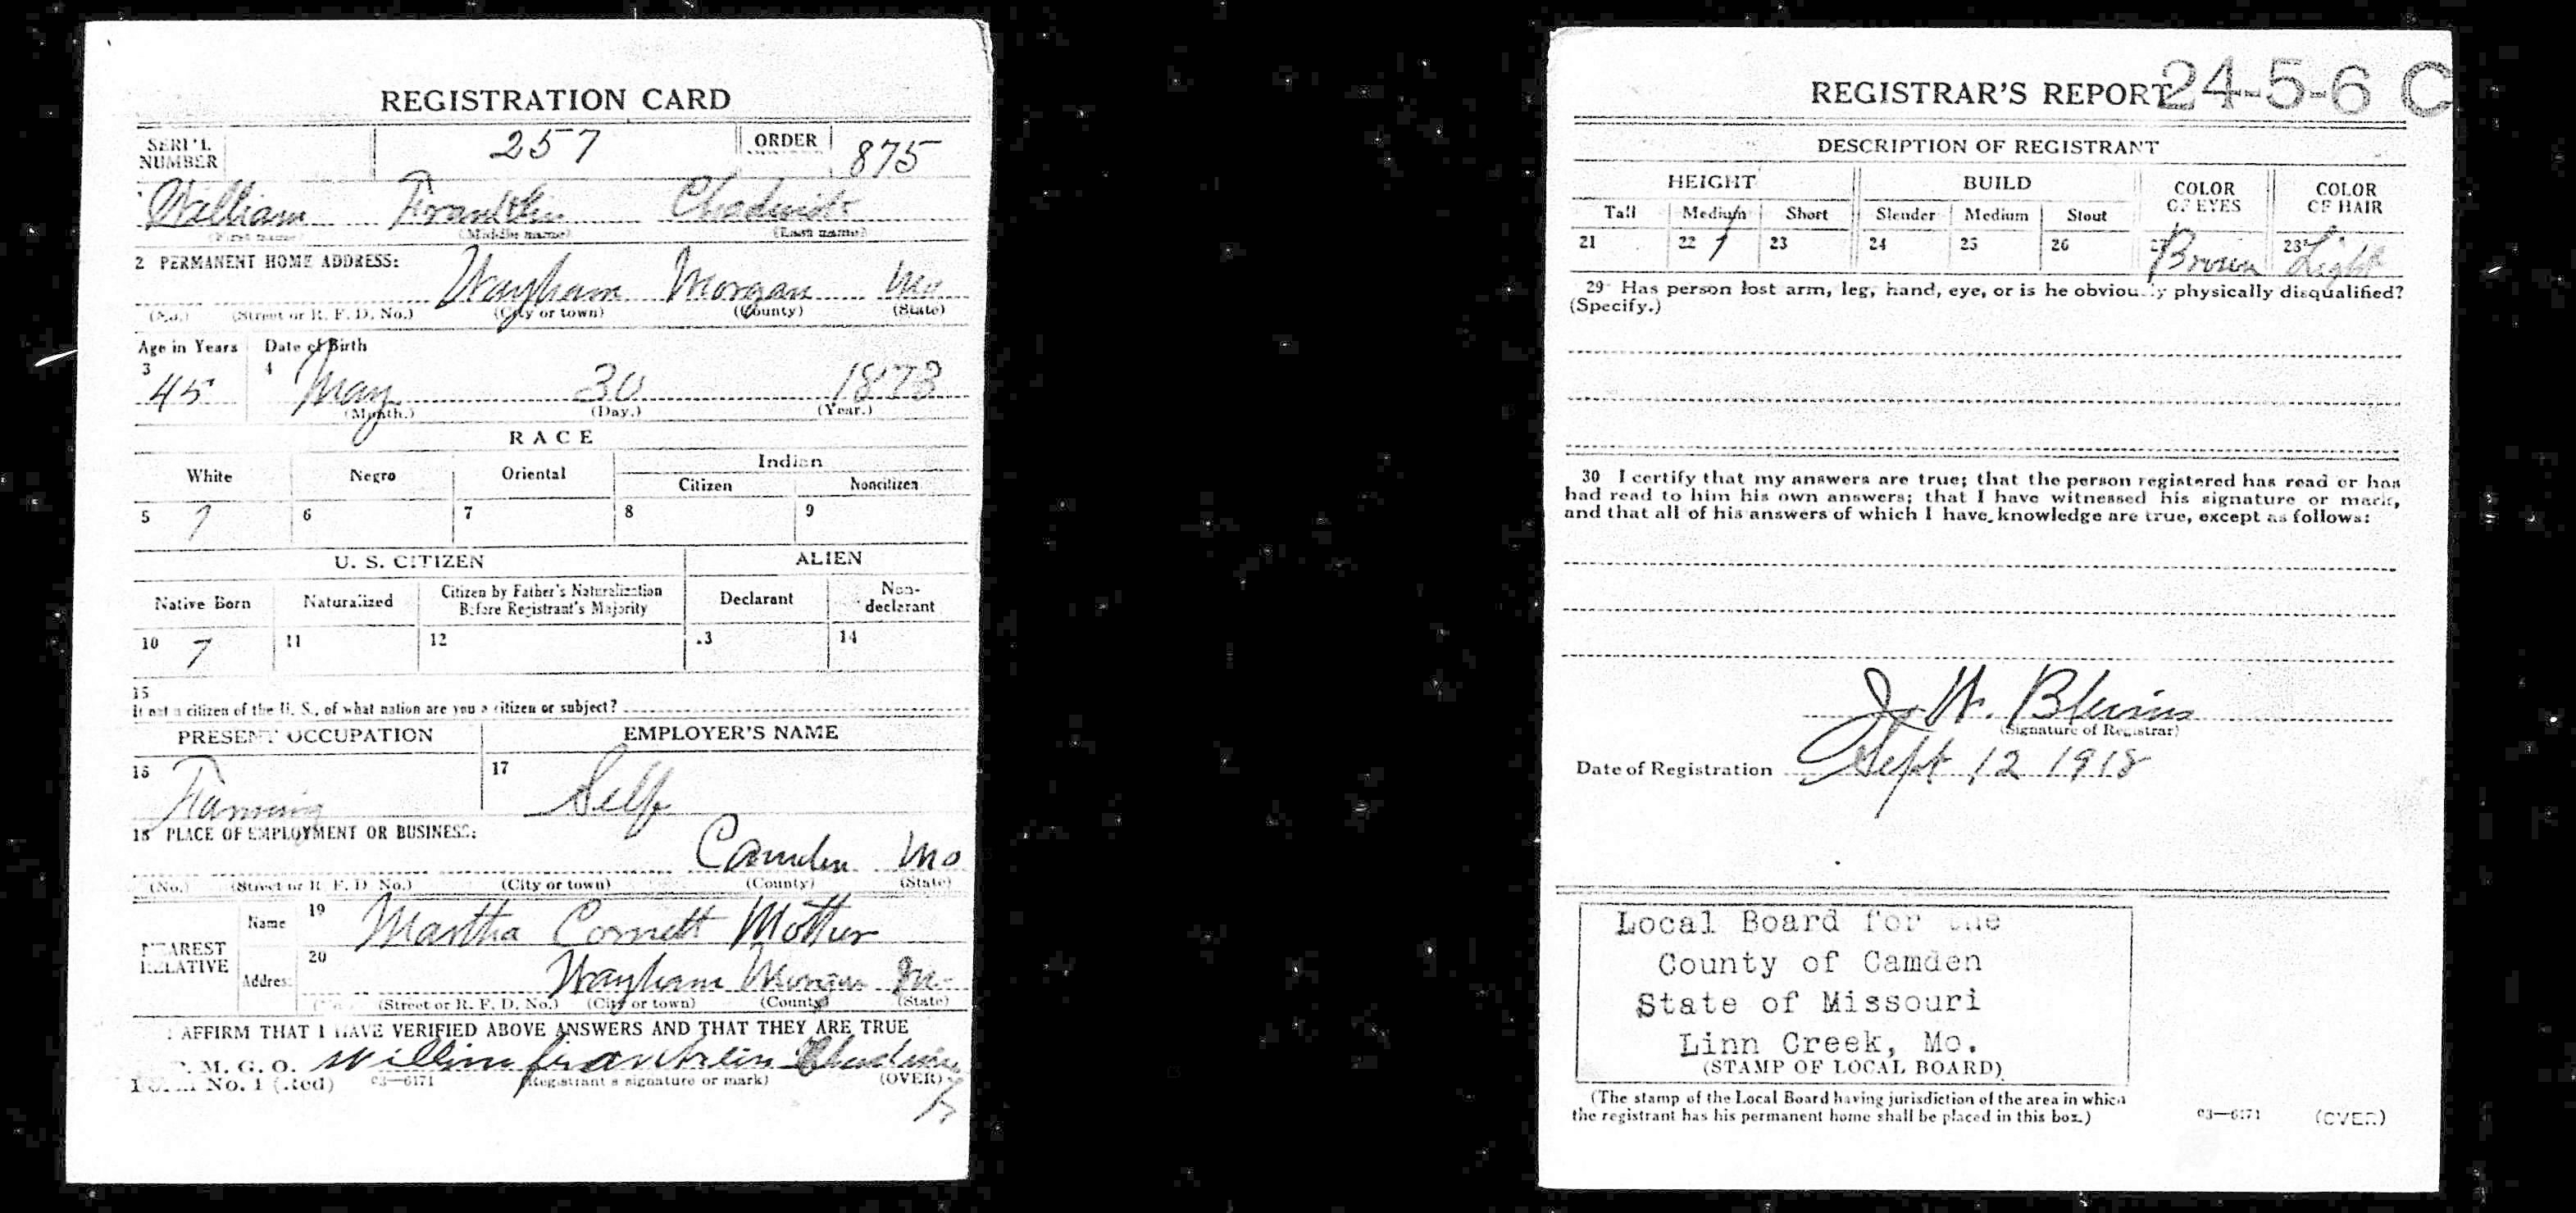 REGISTRATION CARD
SERIAL NUMBER 257 ORDER 875
William Franklin Chadwick
(First name) (Middle name) (Last name)
2 PERMANENT HOME ADDRESS:
Wayham Morgan Mo
(No.) (Street or R. F. D. No.) (City or town) (County) (State)
Age in Years Date of Birth
3 45 4 May 30 1873
(Month.) (Day.) (Year.)
RACE
White Negro Oriental Indian
Citizen Noncitizen
5 6 7 8 9
U. S. CITIZEN ALIEN
Native Born Naturalized Citizen by Father's Naturalization Before Registrant's Majority Declarant Non-declarant
10 11 12 13 14
15
If not a citizen of the U. S., of what nation are you a citizen or subject?
PRESENT OCCUPATION EMPLOYER'S NAME
16 Farming 17 Self
18 PLACE OF EMPLOYMENT OR BUSINESS:
Camden Mo
(No.) (Street or R. F. D. No.) (City or town) (County) (State)
NEAREST RELATIVE
Name 19 Martha Cornett Mother
Address 20 Wayham Morgan Mo
(Street or R. F. D. No.) (City or town) (County) (State)
I AFFIRM THAT I HAVE VERIFIED ABOVE ANSWERS AND THAT THEY ARE TRUE
P. M. G. O. William franklin Chadwick
Form No. 1 (Red) 03—6171 (Registrant's signature or mark) (OVER)
REGISTRAR'S REPORT 24-5-6 C
DESCRIPTION OF REGISTRANT
HEIGHT BUILD COLOR OF EYES COLOR OF HAIR
Tall Medium Short Slender Medium Stout
21 22 23 24 25 26 27 Brown 28 Light
29 Has person lost arm, leg, hand, eye, or is he obviously physically disqualified?
(Specify.)
30 I certify that my answers are true; that the person registered has read or has
had read to him his own answers; that I have witnessed his signature or mark,
and that all of his answers of which I have knowledge are true, except as follows:
J. W. Blevins
(Signature of Registrar)
Date of Registration Sept 12 1918
Local Board for the
County of Camden
State of Missouri
Linn Creek, Mo.
(STAMP OF LOCAL BOARD)
(The stamp of the Local Board having jurisdiction of the area in which
the registrant has his permanent home shall be placed in this box.)
03—6171 (OVER)